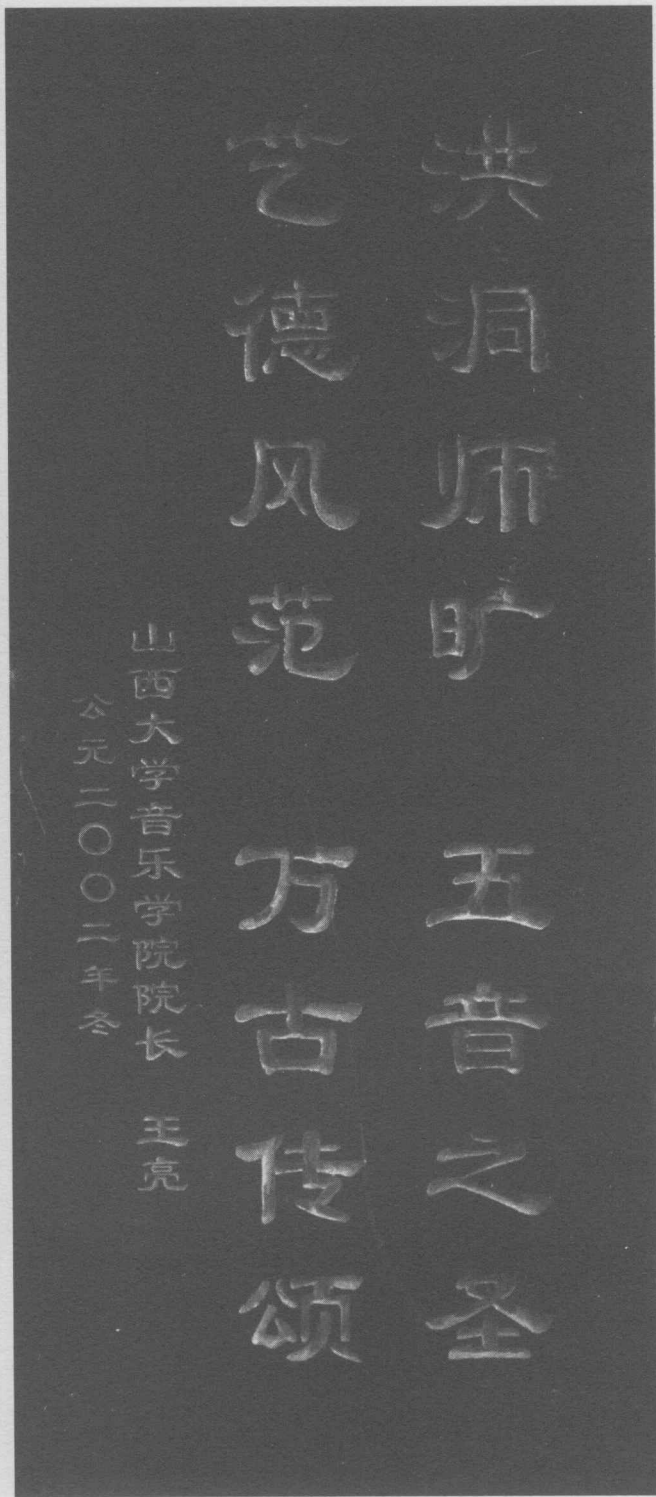 洪洞师旷　五音之圣
艺德风范　万古传颂
山西大学音乐学院院长　王亮
公元二〇〇二年冬